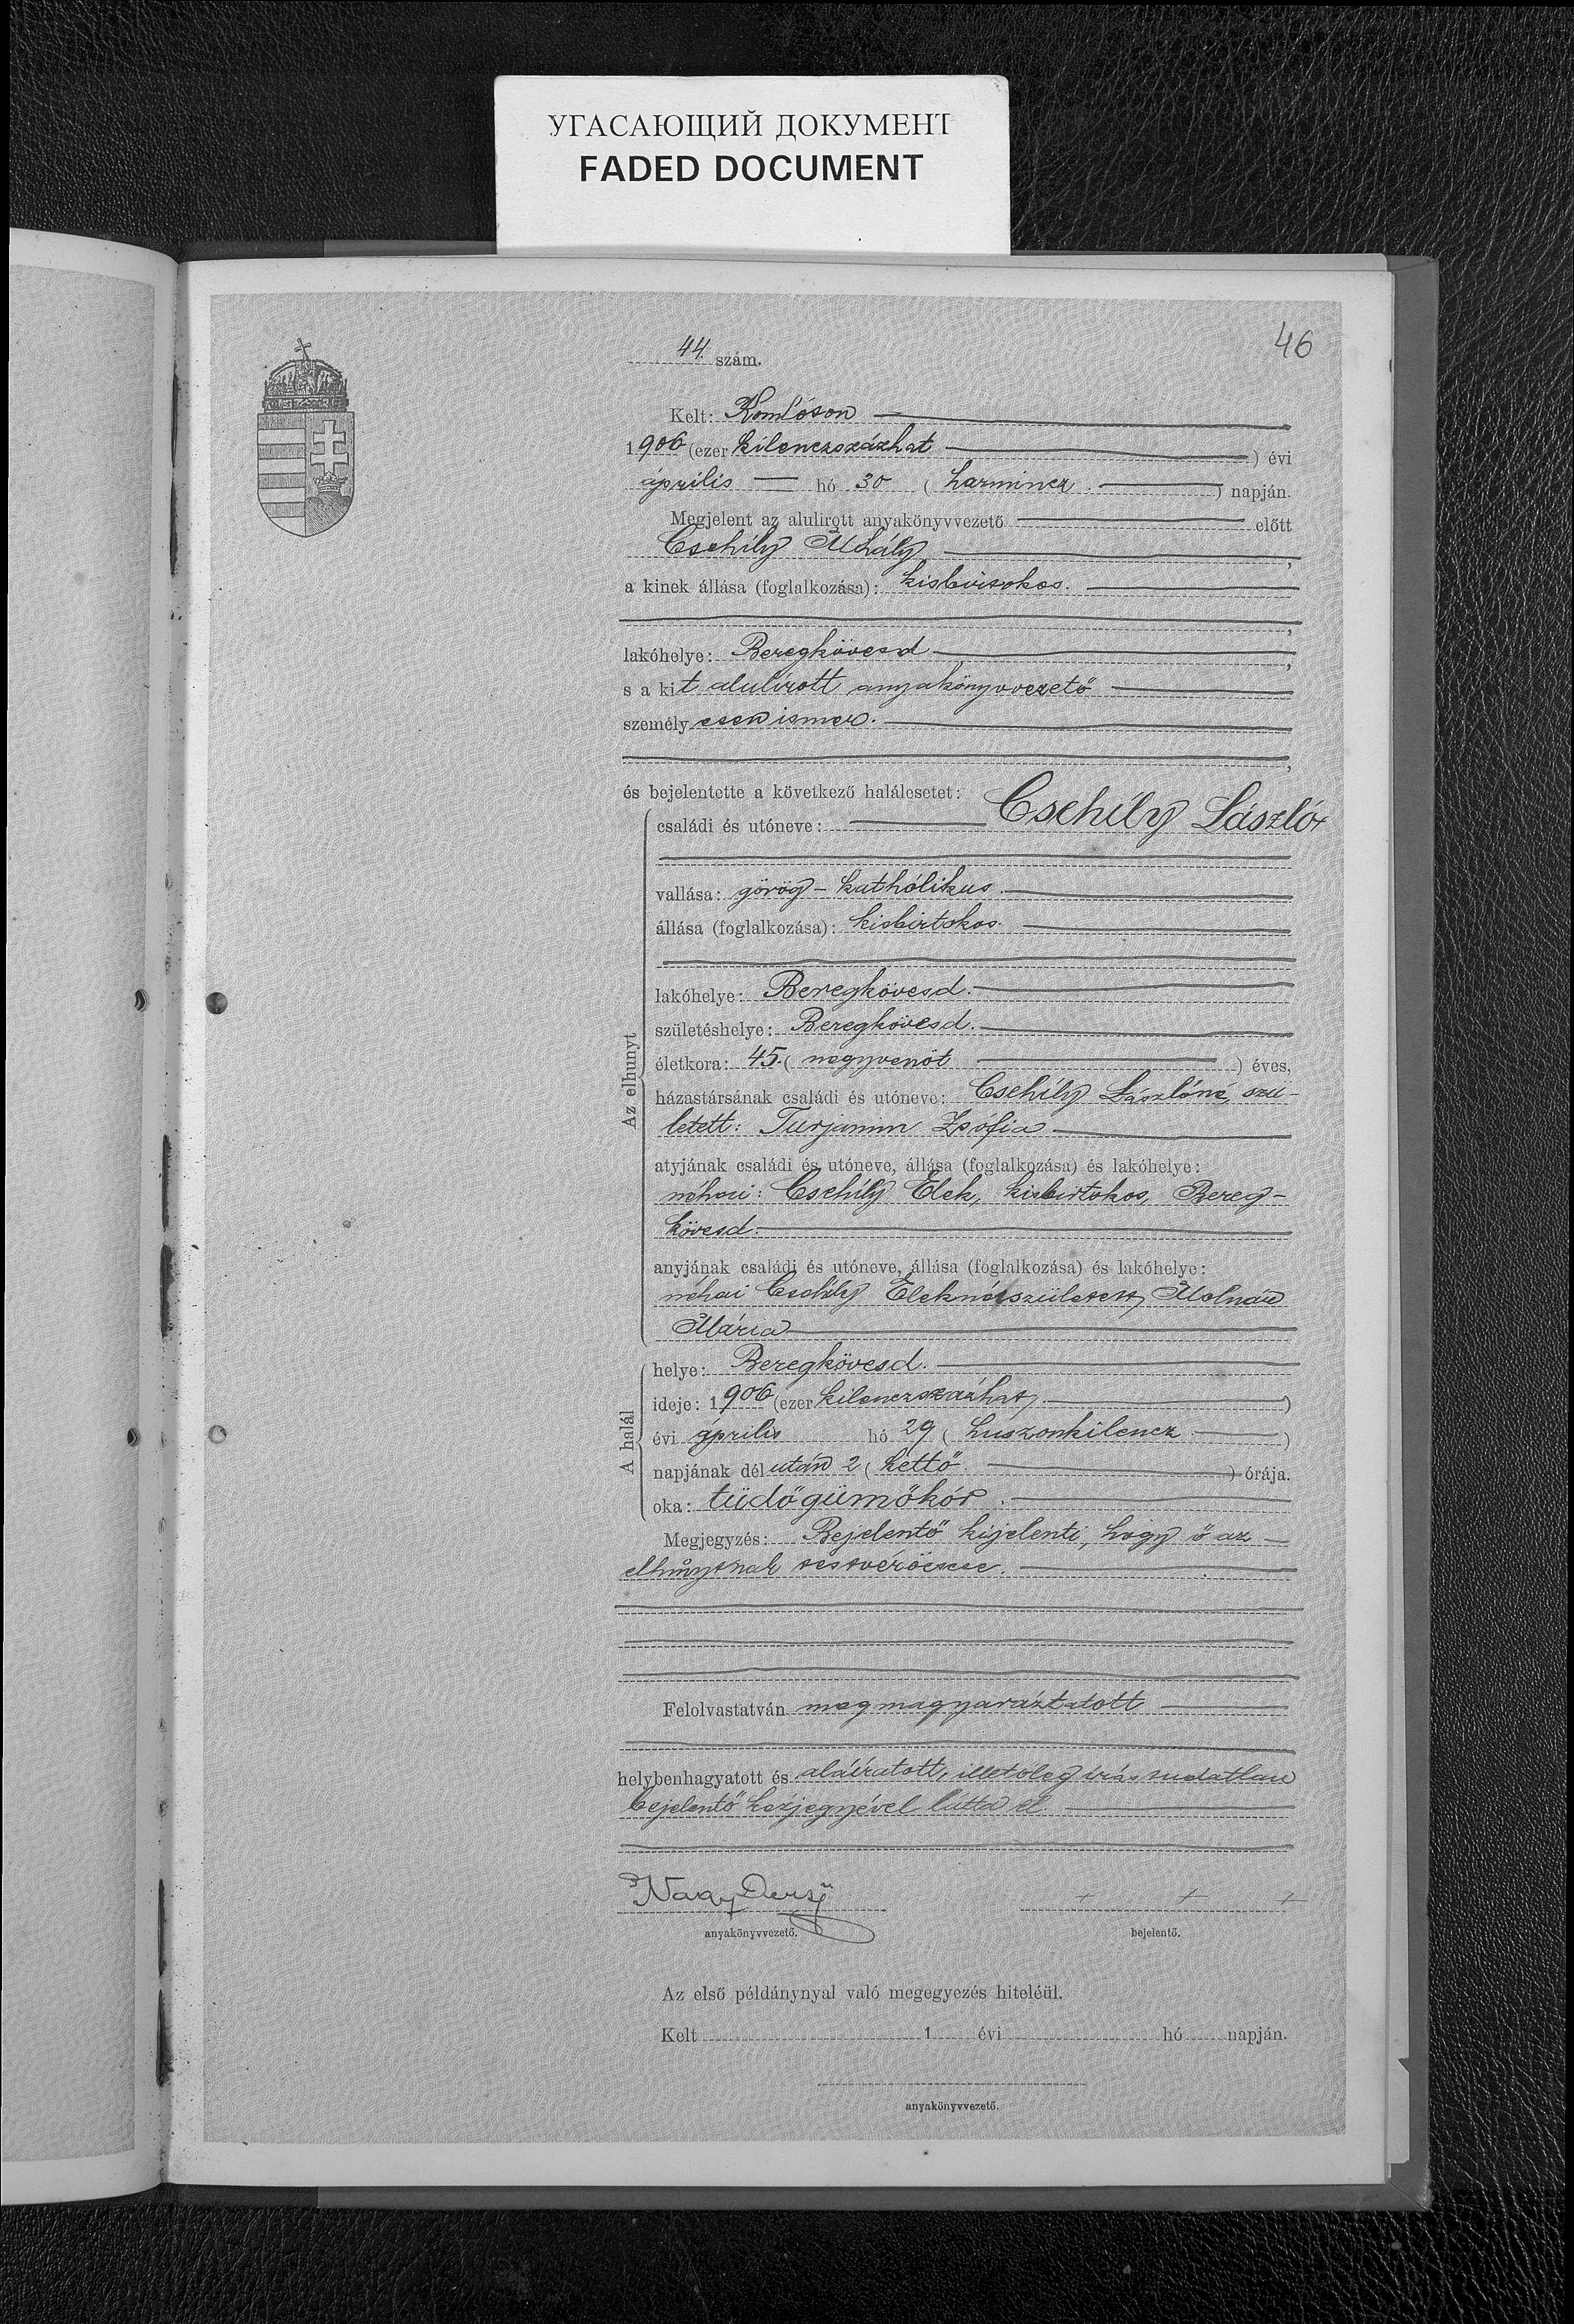 УГАСАЮЩИЙ ДОКУМЕНТ
FADED DOCUMENT
46
44. szám.
Kelt: Komlóson
1906 (ezer kilenczszázhat ) évi
április hó 30 ( harmincz. ) napján.
Megjelent az alulirott anyakönyvvezető előtt
Csehily Mihály,
a kinek állása (foglalkozása): kisbirtokos.
lakóhelye: Beregkövesd,
s a kit alulírott anyakönyvvezető
személyesen ismer.
és bejelentette a következő halálesetet:
családi és utóneve: Csehily László
Az elhunyt
vallása: görög-kathólikus.
állása (foglalkozása): kisbirtokos.
lakóhelye: Beregkövesd.
születéshelye: Beregkövesd.
életkora: 45. ( negyvenöt ) éves,
házastársának családi és utóneve: Csehily Lászlóné, szü-
letett: Turjanin Zsófia
atyjának családi és utóneve, állása (foglalkozása) és lakóhelye:
néhai: Csehily Elek, kisbirtokos, Bereg-
kövesd.
anyjának családi és utóneve, állása (foglalkozása) és lakóhelye:
néhai Csehily Elekné született Molnár
Mária
A halál
helye: Beregkövesd.
ideje: 1906 (ezer kilenczszázhat )
évi április hó 29 ( huszonkilencz. )
napjának délután 2 ( kettő. ) órája.
oka: tüdőgümőkór.
Megjegyzés: Bejelentő kijelenti, hogy ő az
elhúnytnak testvéröcscse.
Felolvastatván megmagyaráztatott
helybenhagyatott és aláíratott, illetőleg írástudatlan
bejelentő kézjegyével látta el
Nagy
+ + +
anyakönyvvezető. bejelentő.
Az első példánynyal való megegyezés hiteléül.
Kelt 1 évi hó napján.
anyakönyvvezető.